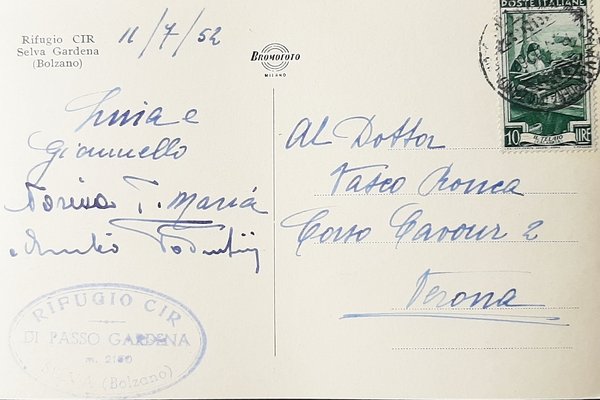 Rifugio CIR
Selva Gardena
(Bolzano)
11/7/52
BROMOFOTO
MILANO
POSTE ITALIANE
10 LIRE
IL TELAIO
e
Giannello
T. Maria
Al Dottor
Vasco Ronca
Corso Cavour 2
Verona
RIFUGIO CIR
DI PASSO GARDENA
m. 2150
SELVA (Bolzano)